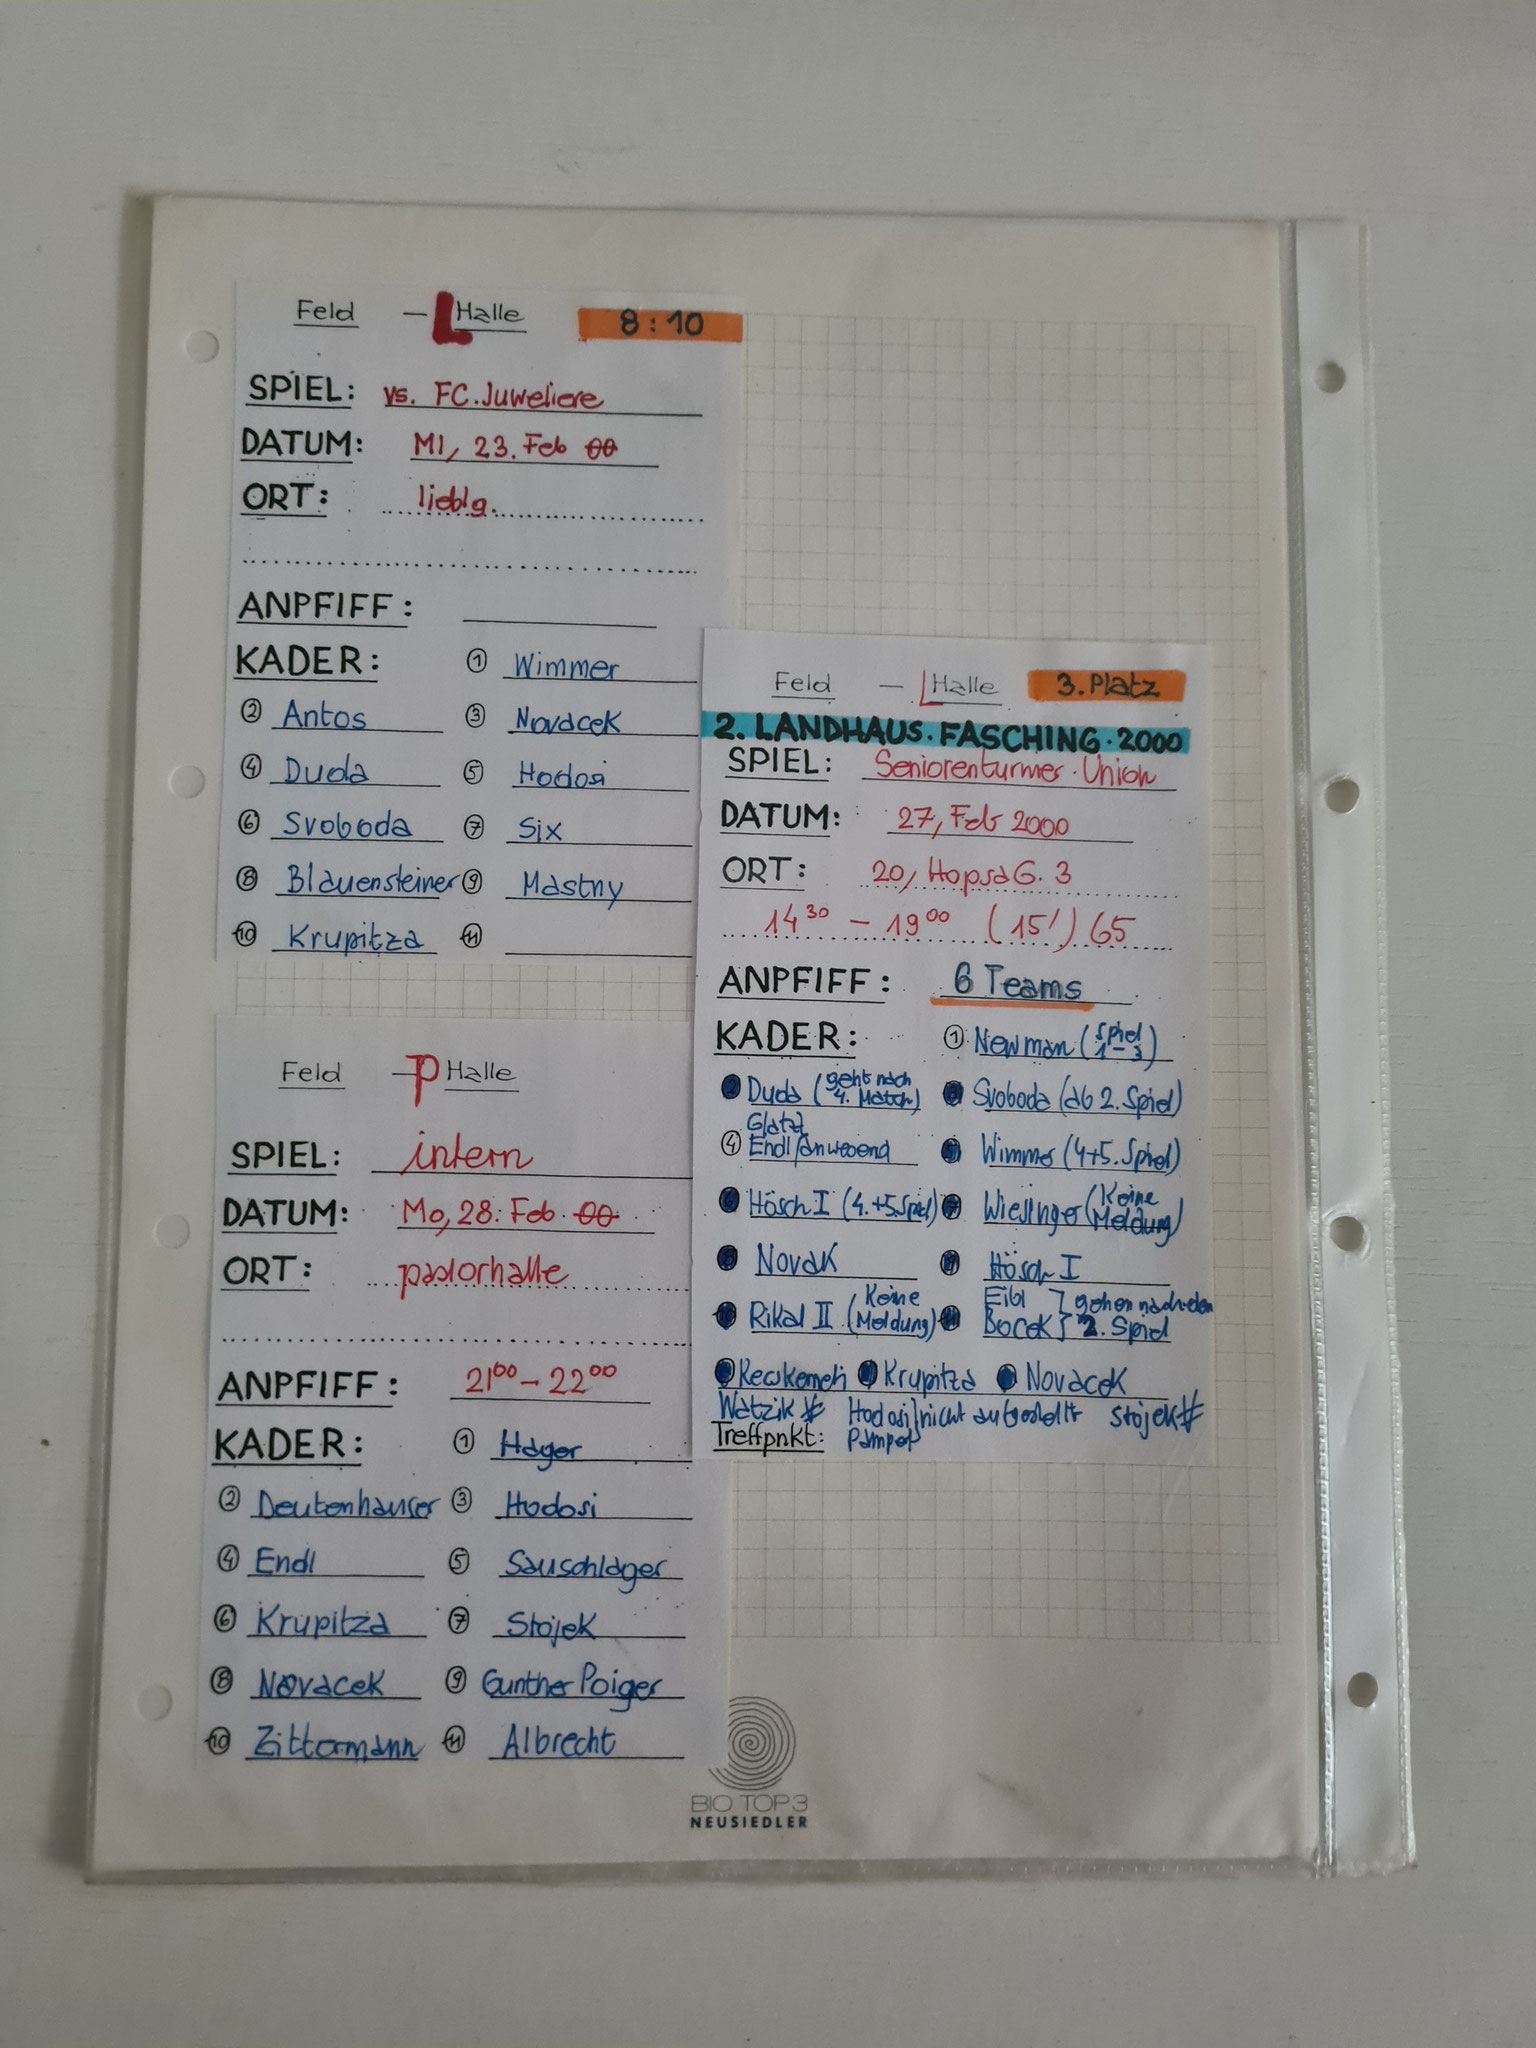 Feld – L Halle 8:10
SPIEL: vs. FC. Juweliere
DATUM: MI, 23. Feb 00
ORT: lieblg.
ANPFIFF:
KADER: 1 Wimmer
2 Antos 3 Novacek
4 Duda 5 Hodosi
6 Svoboda 7 Six
8 Blauensteiner 9 Mastny
10 Krupitza 11
Feld – L Halle 3. Platz
2. LANDHAUS. FASCHING. 2000
SPIEL: Seniorenturnier. Union
DATUM: 27, Feb 2000
ORT: 20, HopsaG. 3
14 30 – 19 00 (15') 65
ANPFIFF: 6 Teams
KADER: 1 Newman (Spiel 1–3)
2 Duda (geht nach 4. Match) Svoboda (ab 2. Spiel)
Glatzl
4 Endl/anwesend Wimmer (4+5. Spiel)
6 Hösch I (4.+5.Spiel) Wiesinger (Keine Meldung)
Novak Hösch I
10 Rikal II (Keine Meldung) 11 Eibl Bocek } gehen nach den 2. Spiel
Krupitza Novacek
Watzik Hodosi nicht aufgestellt Stojek
Treffpnkt:
Feld – P Halle
SPIEL: intern
DATUM: Mo, 28. Feb. 00
ORT: pastorhalle
ANPFIFF: 21 00 – 22 00
KADER: 1 Hager
2 Deutenhauser 3 Hodosi
4 Endl 5 Sauschlager
6 Krupitza 7 Stojek
8 Novacek 9 Gunther Poiger
10 Zittermann 11 Albrecht
BIO TOP 3
NEUSIEDLER